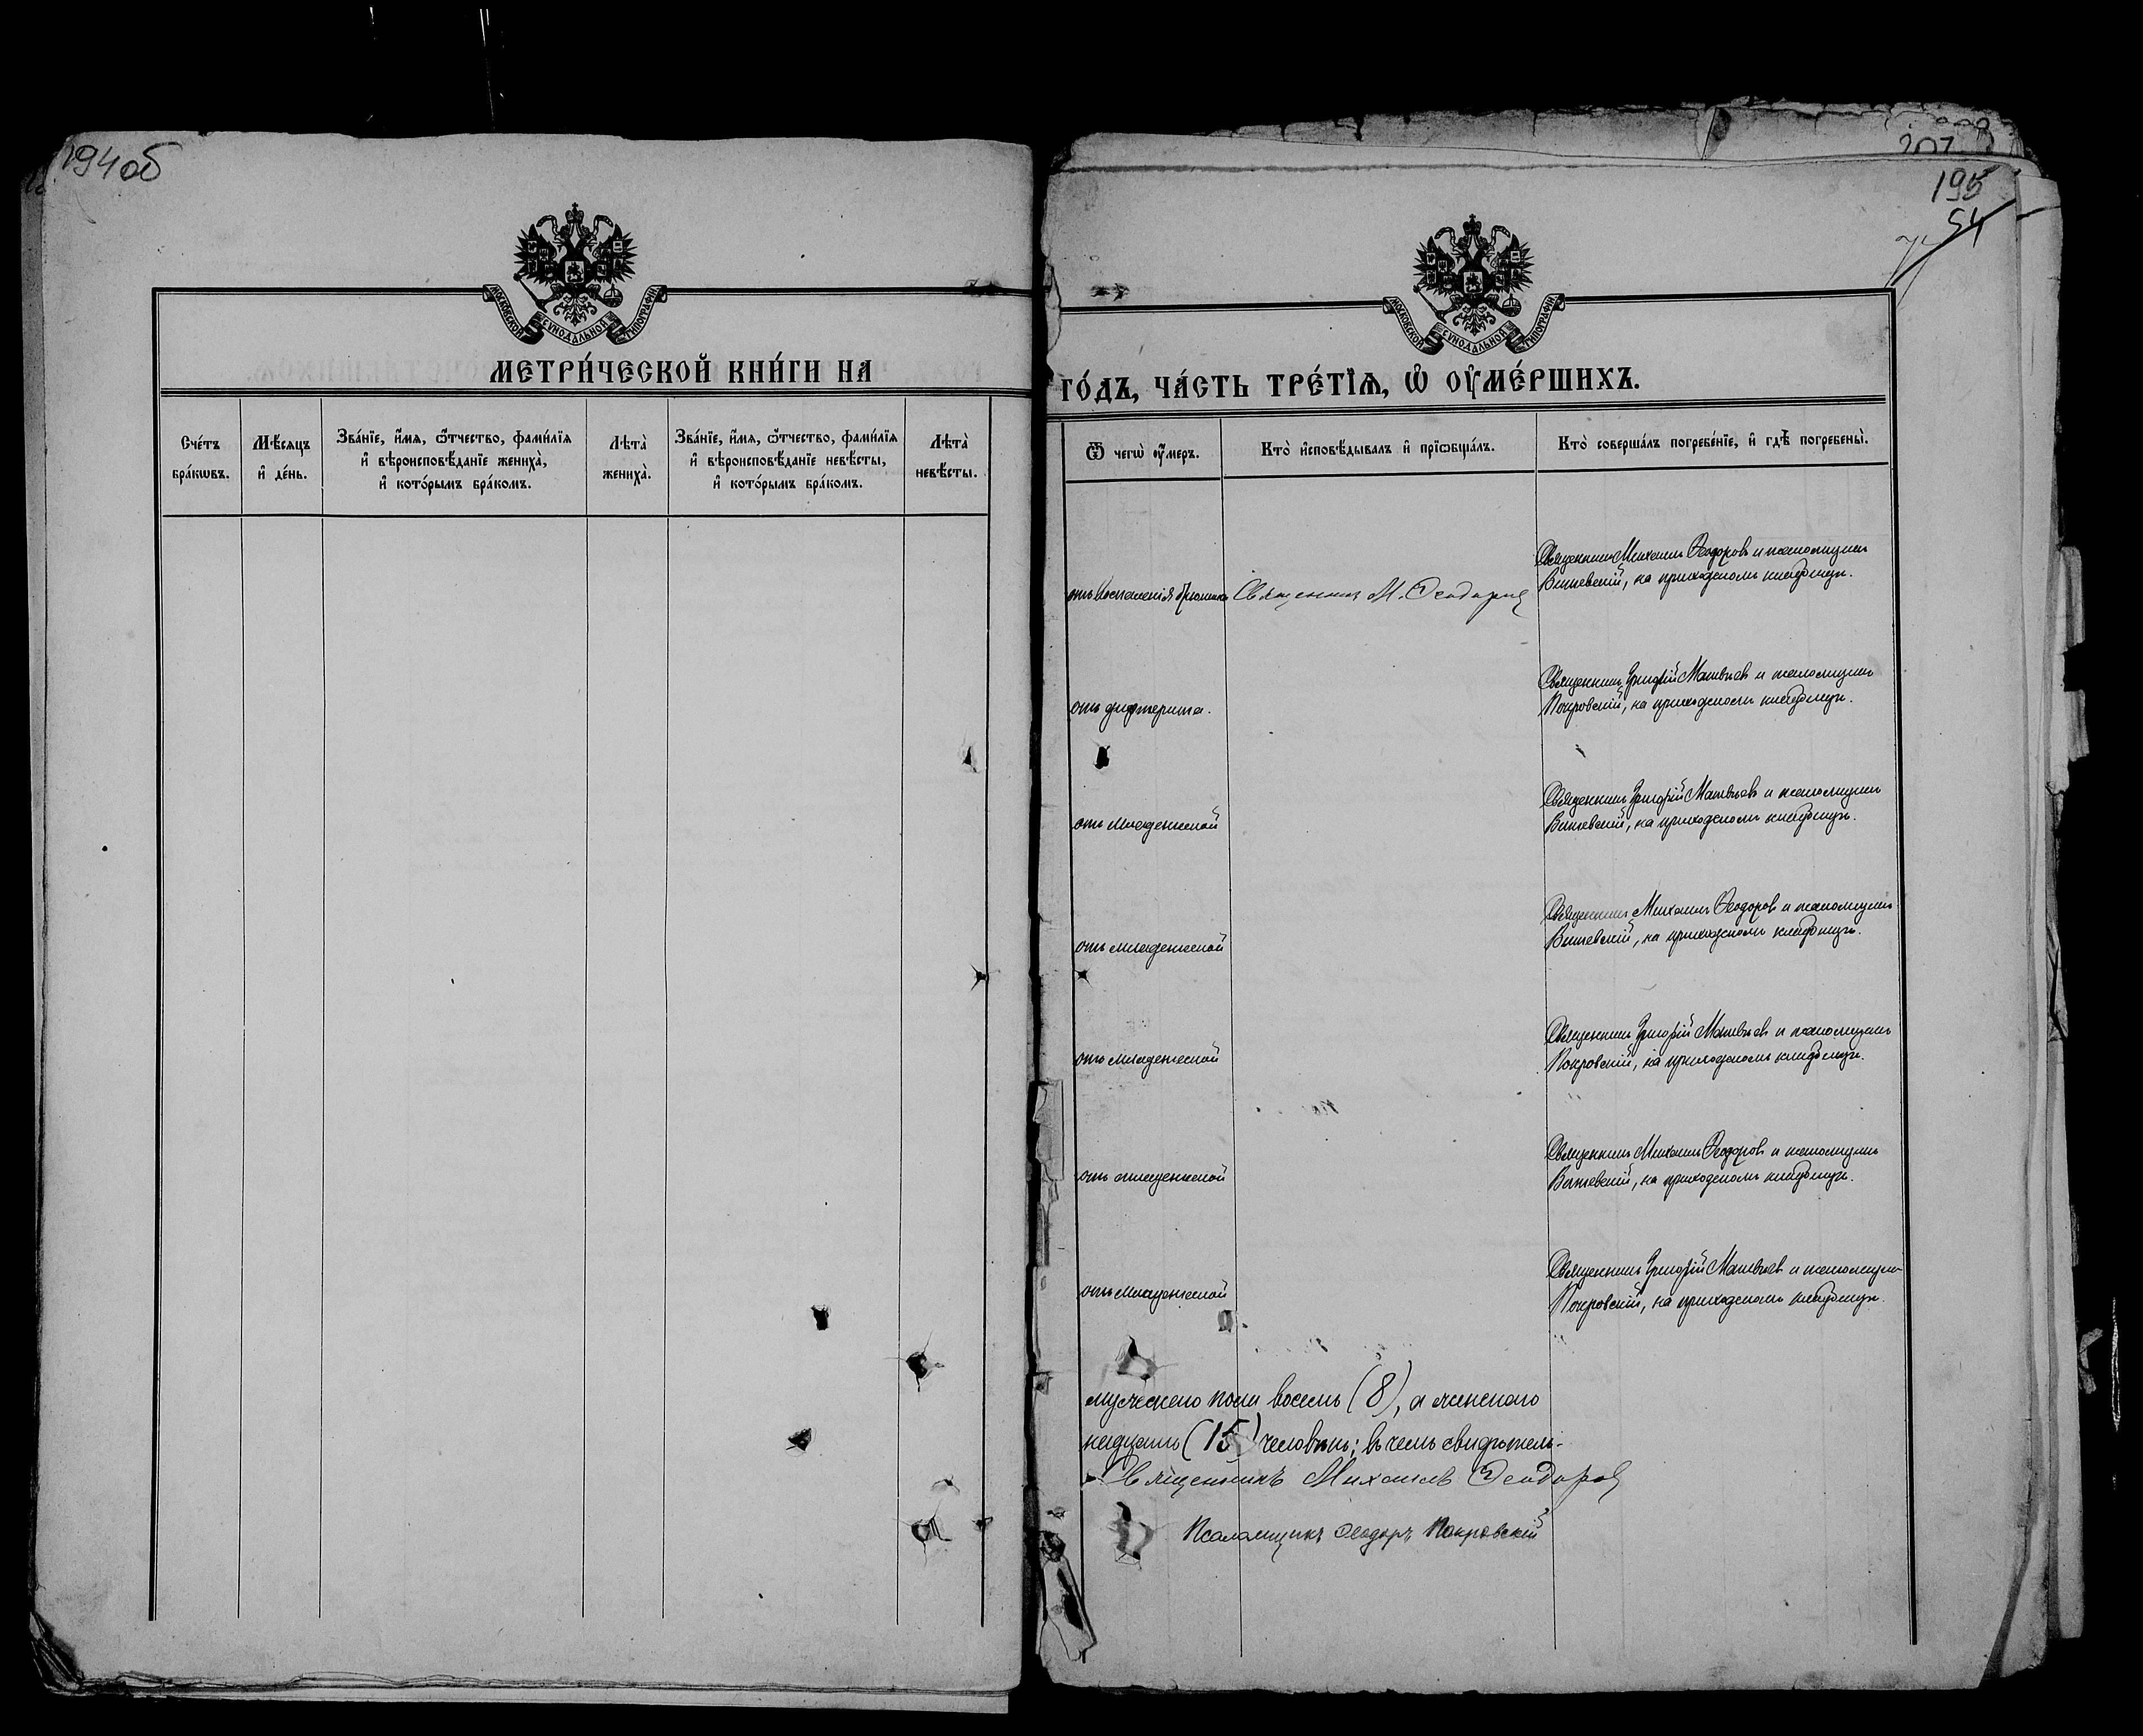 194об
МОСКОВСКОЙ СѴНОДАЛЬНОЙ ТИПОГРАФІИ
МЕТРИ́ЧЕСКОЙ КНИ́ГИ НА
Сче́тъ бра́кѡвъ.
Мѣ́сяцъ и҆ де́нь.
Зва́нїе, и҆́мѧ, ѻ҆́тчество, фами́лїѧ
и҆ вѣроисповѣ́данїе жениха̀,
и҆ кото́рымъ бра́комъ.
Лѣта̀ жениха̀.
Зва́нїе, и҆́мѧ, ѻ҆́тчество, фами́лїѧ
и҆ вѣроисповѣ́данїе невѣ́сты,
и҆ кото́рымъ бра́комъ.
Лѣта̀ невѣ́сты.
207
195
54
МОСКОВСКОЙ СѴНОДАЛЬНОЙ ТИПОГРАФІИ
ГО́ДЪ, ЧА́СТЬ ТРЕ́ТЇѦ, Ѡ҆ ОУ҆МЕ́РШИХЪ.
Ѿ чегѡ̀ ᲂу҆́меръ.
Кто̀ и҆сповѣ́дывалъ и҆ прїѡбща́лъ.
Кто̀ соверша́лъ погребе́нїе, и҆ гдѣ̀ погребены̀.
отъ воспаленія брюшины
Священникъ М. Ѳеодоровъ
Священникъ Михаилъ Ѳеодоровъ и псаломщикъ
на приходскомъ кладбищѣ.
отъ дифтерита.
Священникъ Григорій Матвѣевъ и псаломщикъ
Покровскій, на приходскомъ кладбищѣ.
отъ младенческой
Священникъ Григорій Матвѣевъ и псаломщикъ
на приходскомъ кладбищѣ.
отъ младенческой
Священникъ Михаилъ Ѳеодоровъ и псаломщикъ
на приходскомъ кладбищѣ.
отъ младенческой
Священникъ Григорій Матвѣевъ и псаломщикъ
Покровскій, на приходскомъ кладбищѣ.
отъ младенческой
Священникъ Михаилъ Ѳеодоровъ и псаломщикъ
на приходскомъ кладбищѣ.
отъ младенческой
Священникъ Григорій Матвѣевъ и псаломщикъ
Покровскій, на приходскомъ кладбищѣ.
мужескаго пола восемь (8), а женскаго
надцать (15) человѣкъ; въ чемъ свидѣтель-
Священникъ Михаилъ Ѳеодоровъ
Псаломщикъ Ѳеодоръ Покровскій